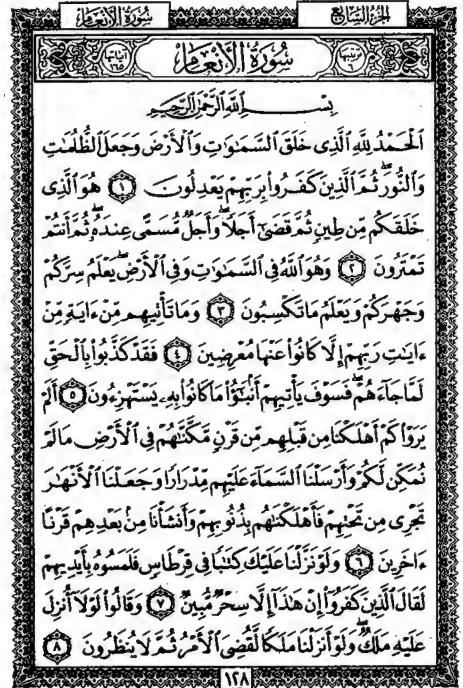 سُورَةُ الْأَنْعَامِ الجزء السابع
ترتيبها ٦ سُورَةُ الْأَنْعَامِ آياتها ١٦٥
بِسْمِ ٱللَّهِ ٱلرَّحْمَٰنِ ٱلرَّحِيمِ
ٱلْحَمْدُ لِلَّهِ ٱلَّذِى خَلَقَ ٱلسَّمَٰوَٰتِ وَٱلْأَرْضَ وَجَعَلَ ٱلظُّلُمَٰتِ
وَٱلنُّورَۖ ثُمَّ ٱلَّذِينَ كَفَرُوا۟ بِرَبِّهِمْ يَعْدِلُونَ ١ هُوَ ٱلَّذِى
خَلَقَكُم مِّن طِينٍ ثُمَّ قَضَىٰٓ أَجَلًاۖ وَأَجَلٌ مُّسَمًّى عِندَهُۥۖ ثُمَّ أَنتُمْ
تَمْتَرُونَ ٢ وَهُوَ ٱللَّهُ فِى ٱلسَّمَٰوَٰتِ وَفِى ٱلْأَرْضِۖ يَعْلَمُ سِرَّكُمْ
وَجَهْرَكُمْ وَيَعْلَمُ مَا تَكْسِبُونَ ٣ وَمَا تَأْتِيهِم مِّنْ ءَايَةٍ مِّنْ
ءَايَٰتِ رَبِّهِمْ إِلَّا كَانُوا۟ عَنْهَا مُعْرِضِينَ ٤ فَقَدْ كَذَّبُوا۟ بِٱلْحَقِّ
لَمَّا جَآءَهُمْۖ فَسَوْفَ يَأْتِيهِمْ أَنۢبَٰٓؤُا۟ مَا كَانُوا۟ بِهِۦ يَسْتَهْزِءُونَ ٥ أَلَمْ
يَرَوْا۟ كَمْ أَهْلَكْنَا مِن قَبْلِهِم مِّن قَرْنٍ مَّكَّنَّٰهُمْ فِى ٱلْأَرْضِ مَا لَمْ
نُمَكِّن لَّكُمْ وَأَرْسَلْنَا ٱلسَّمَآءَ عَلَيْهِم مِّدْرَارًا وَجَعَلْنَا ٱلْأَنْهَٰرَ
تَجْرِى مِن تَحْتِهِمْ فَأَهْلَكْنَٰهُم بِذُنُوبِهِمْ وَأَنشَأْنَا مِنۢ بَعْدِهِمْ قَرْنًا
ءَاخَرِينَ ٦ وَلَوْ نَزَّلْنَا عَلَيْكَ كِتَٰبًا فِى قِرْطَاسٍ فَلَمَسُوهُ بِأَيْدِيهِمْ
لَقَالَ ٱلَّذِينَ كَفَرُوٓا۟ إِنْ هَٰذَآ إِلَّا سِحْرٌ مُّبِينٌ ٧ وَقَالُوا۟ لَوْلَآ أُنزِلَ
عَلَيْهِ مَلَكٌۖ وَلَوْ أَنزَلْنَا مَلَكًا لَّقُضِىَ ٱلْأَمْرُ ثُمَّ لَا يُنظَرُونَ ٨
١٢٨